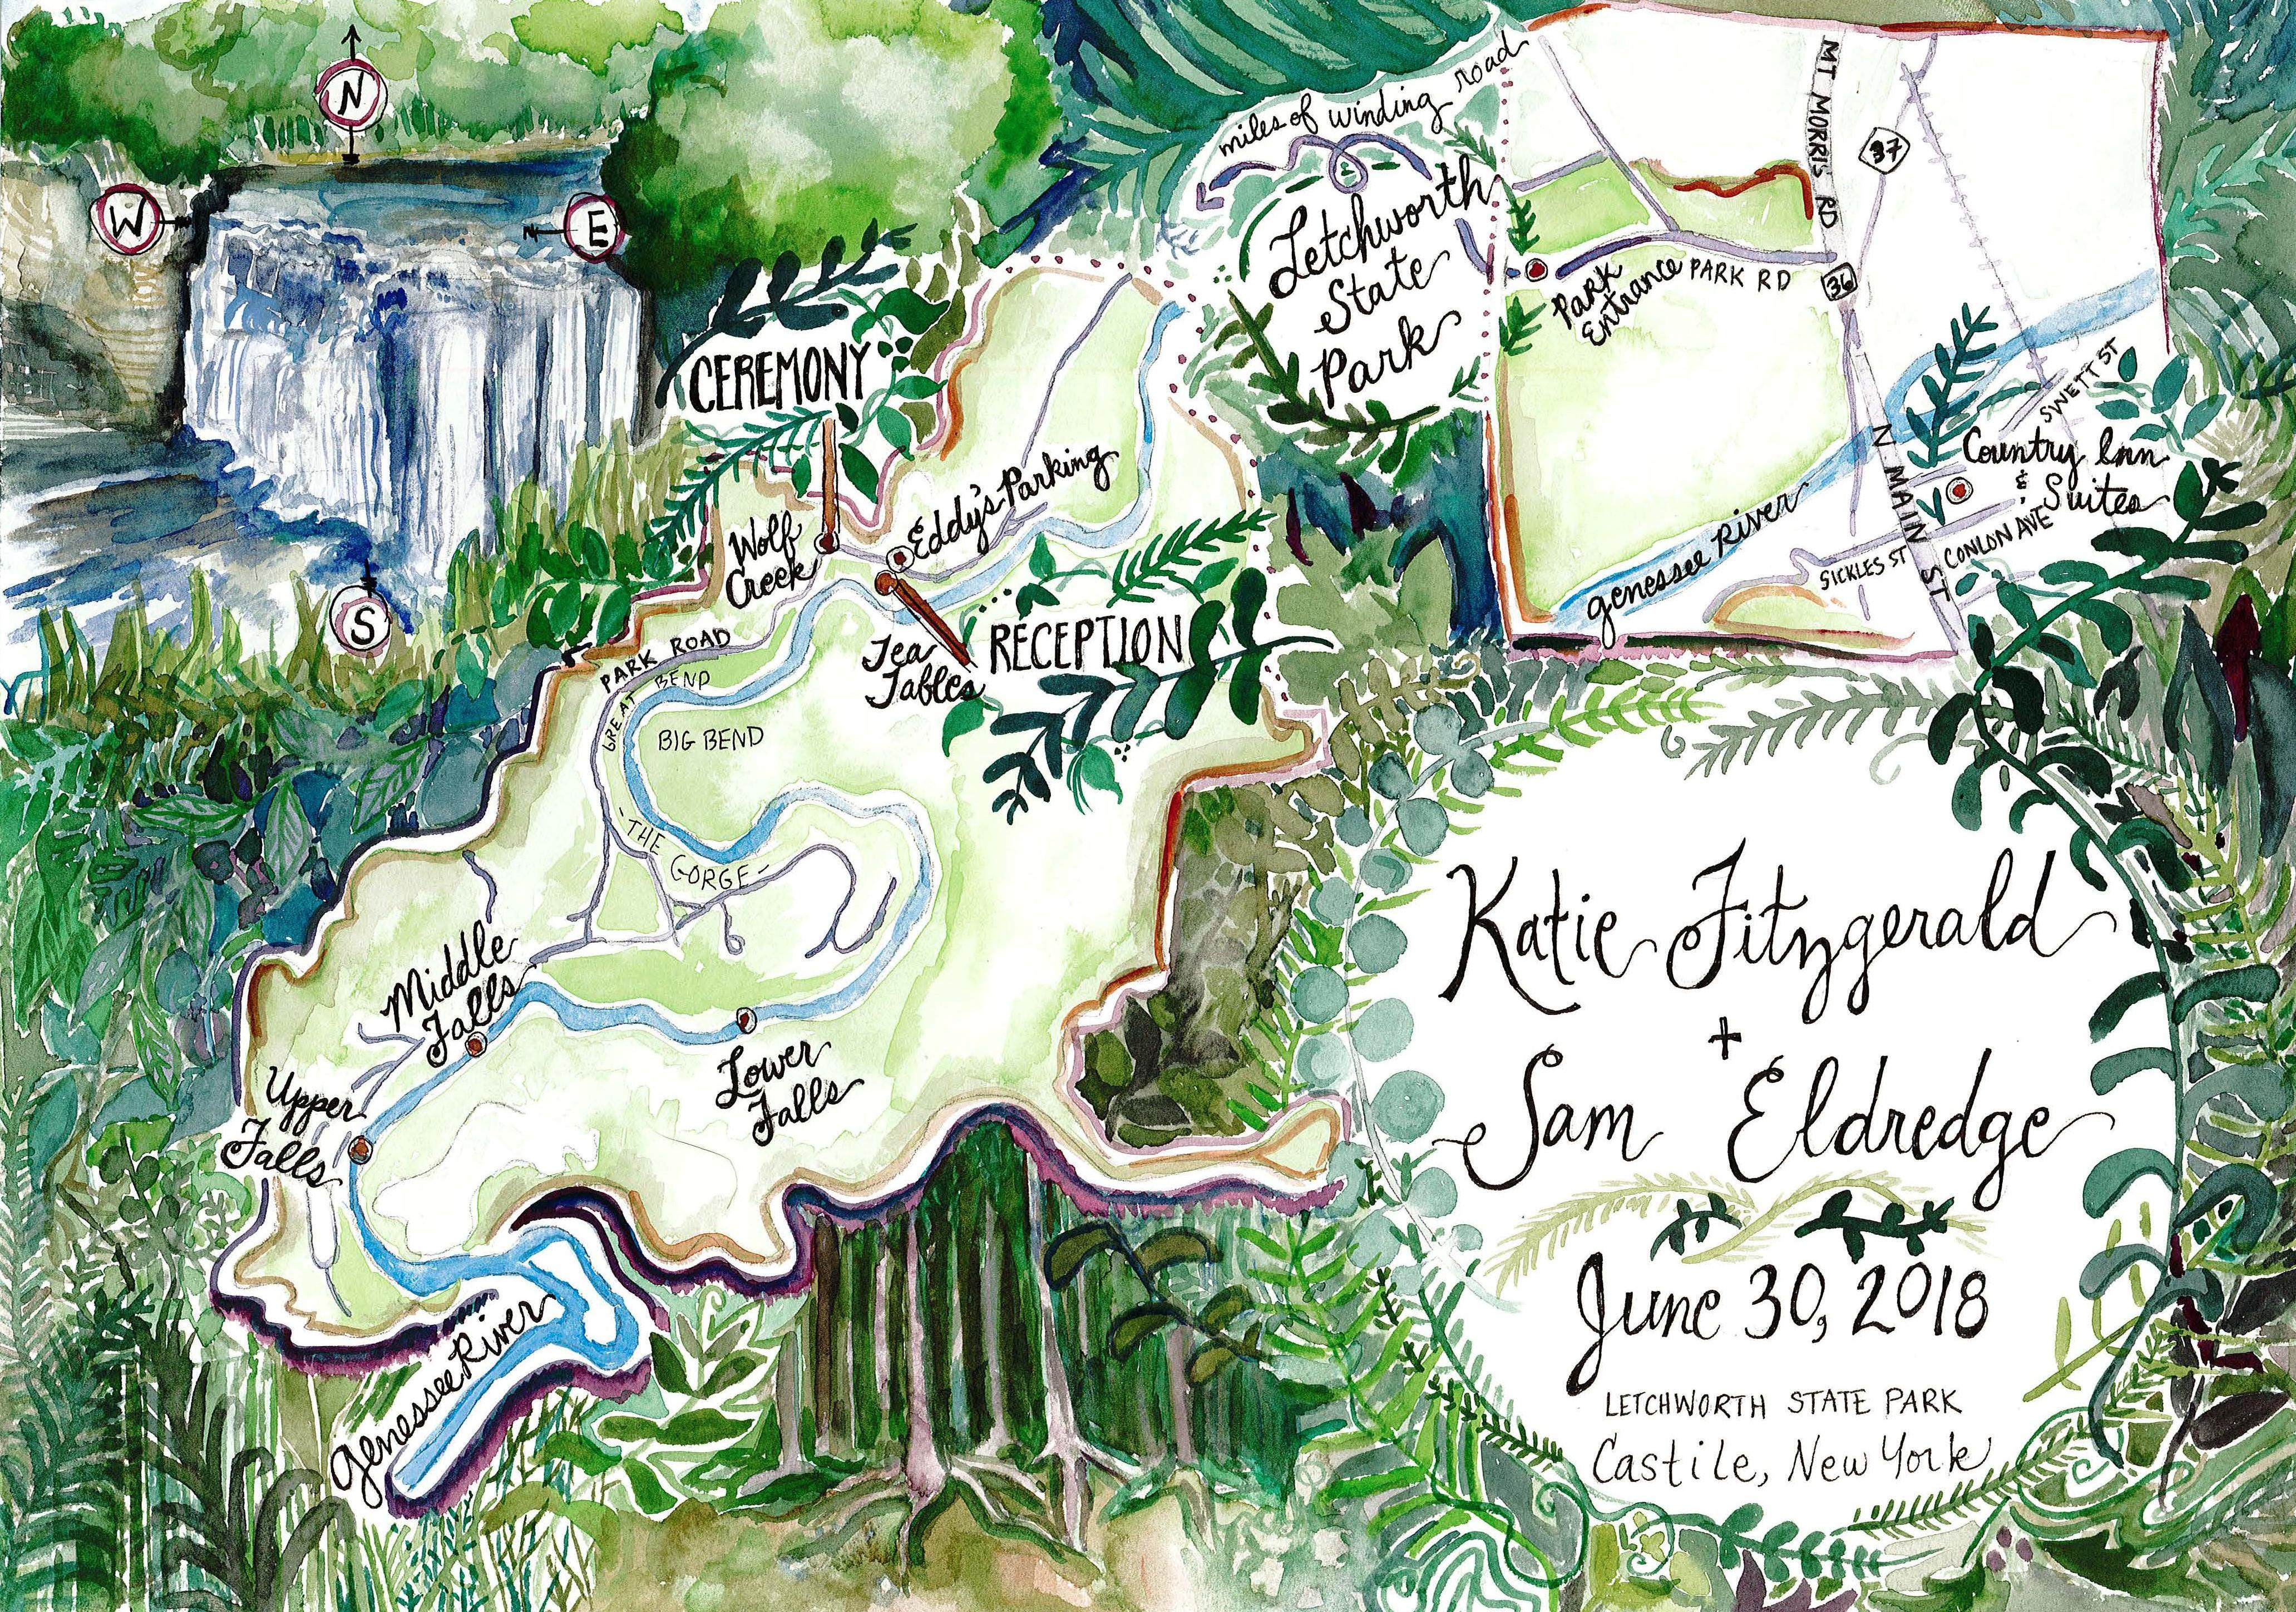 N
W
E
S
CEREMONY
Wolf
Creek
Eddy's Parking
Tea
Tables
RECEPTION
PARK ROAD
GREAT BEND
BIG BEND
-THE GORGE-
Middle
Falls
Upper
Falls
Lower
Falls
Genessee River
miles of winding road
Letchworth
State
Park
Park
Entrance
PARK RD
MT MORRIS RD
37
36
Genessee River
N MAIN ST
SWETT ST
Country Inn
&
Suites
CONLON AVE
SICKLES ST
Katie Fitzgerald
+
Sam Eldredge
June 30, 2018
LETCHWORTH STATE PARK
Castile, New York